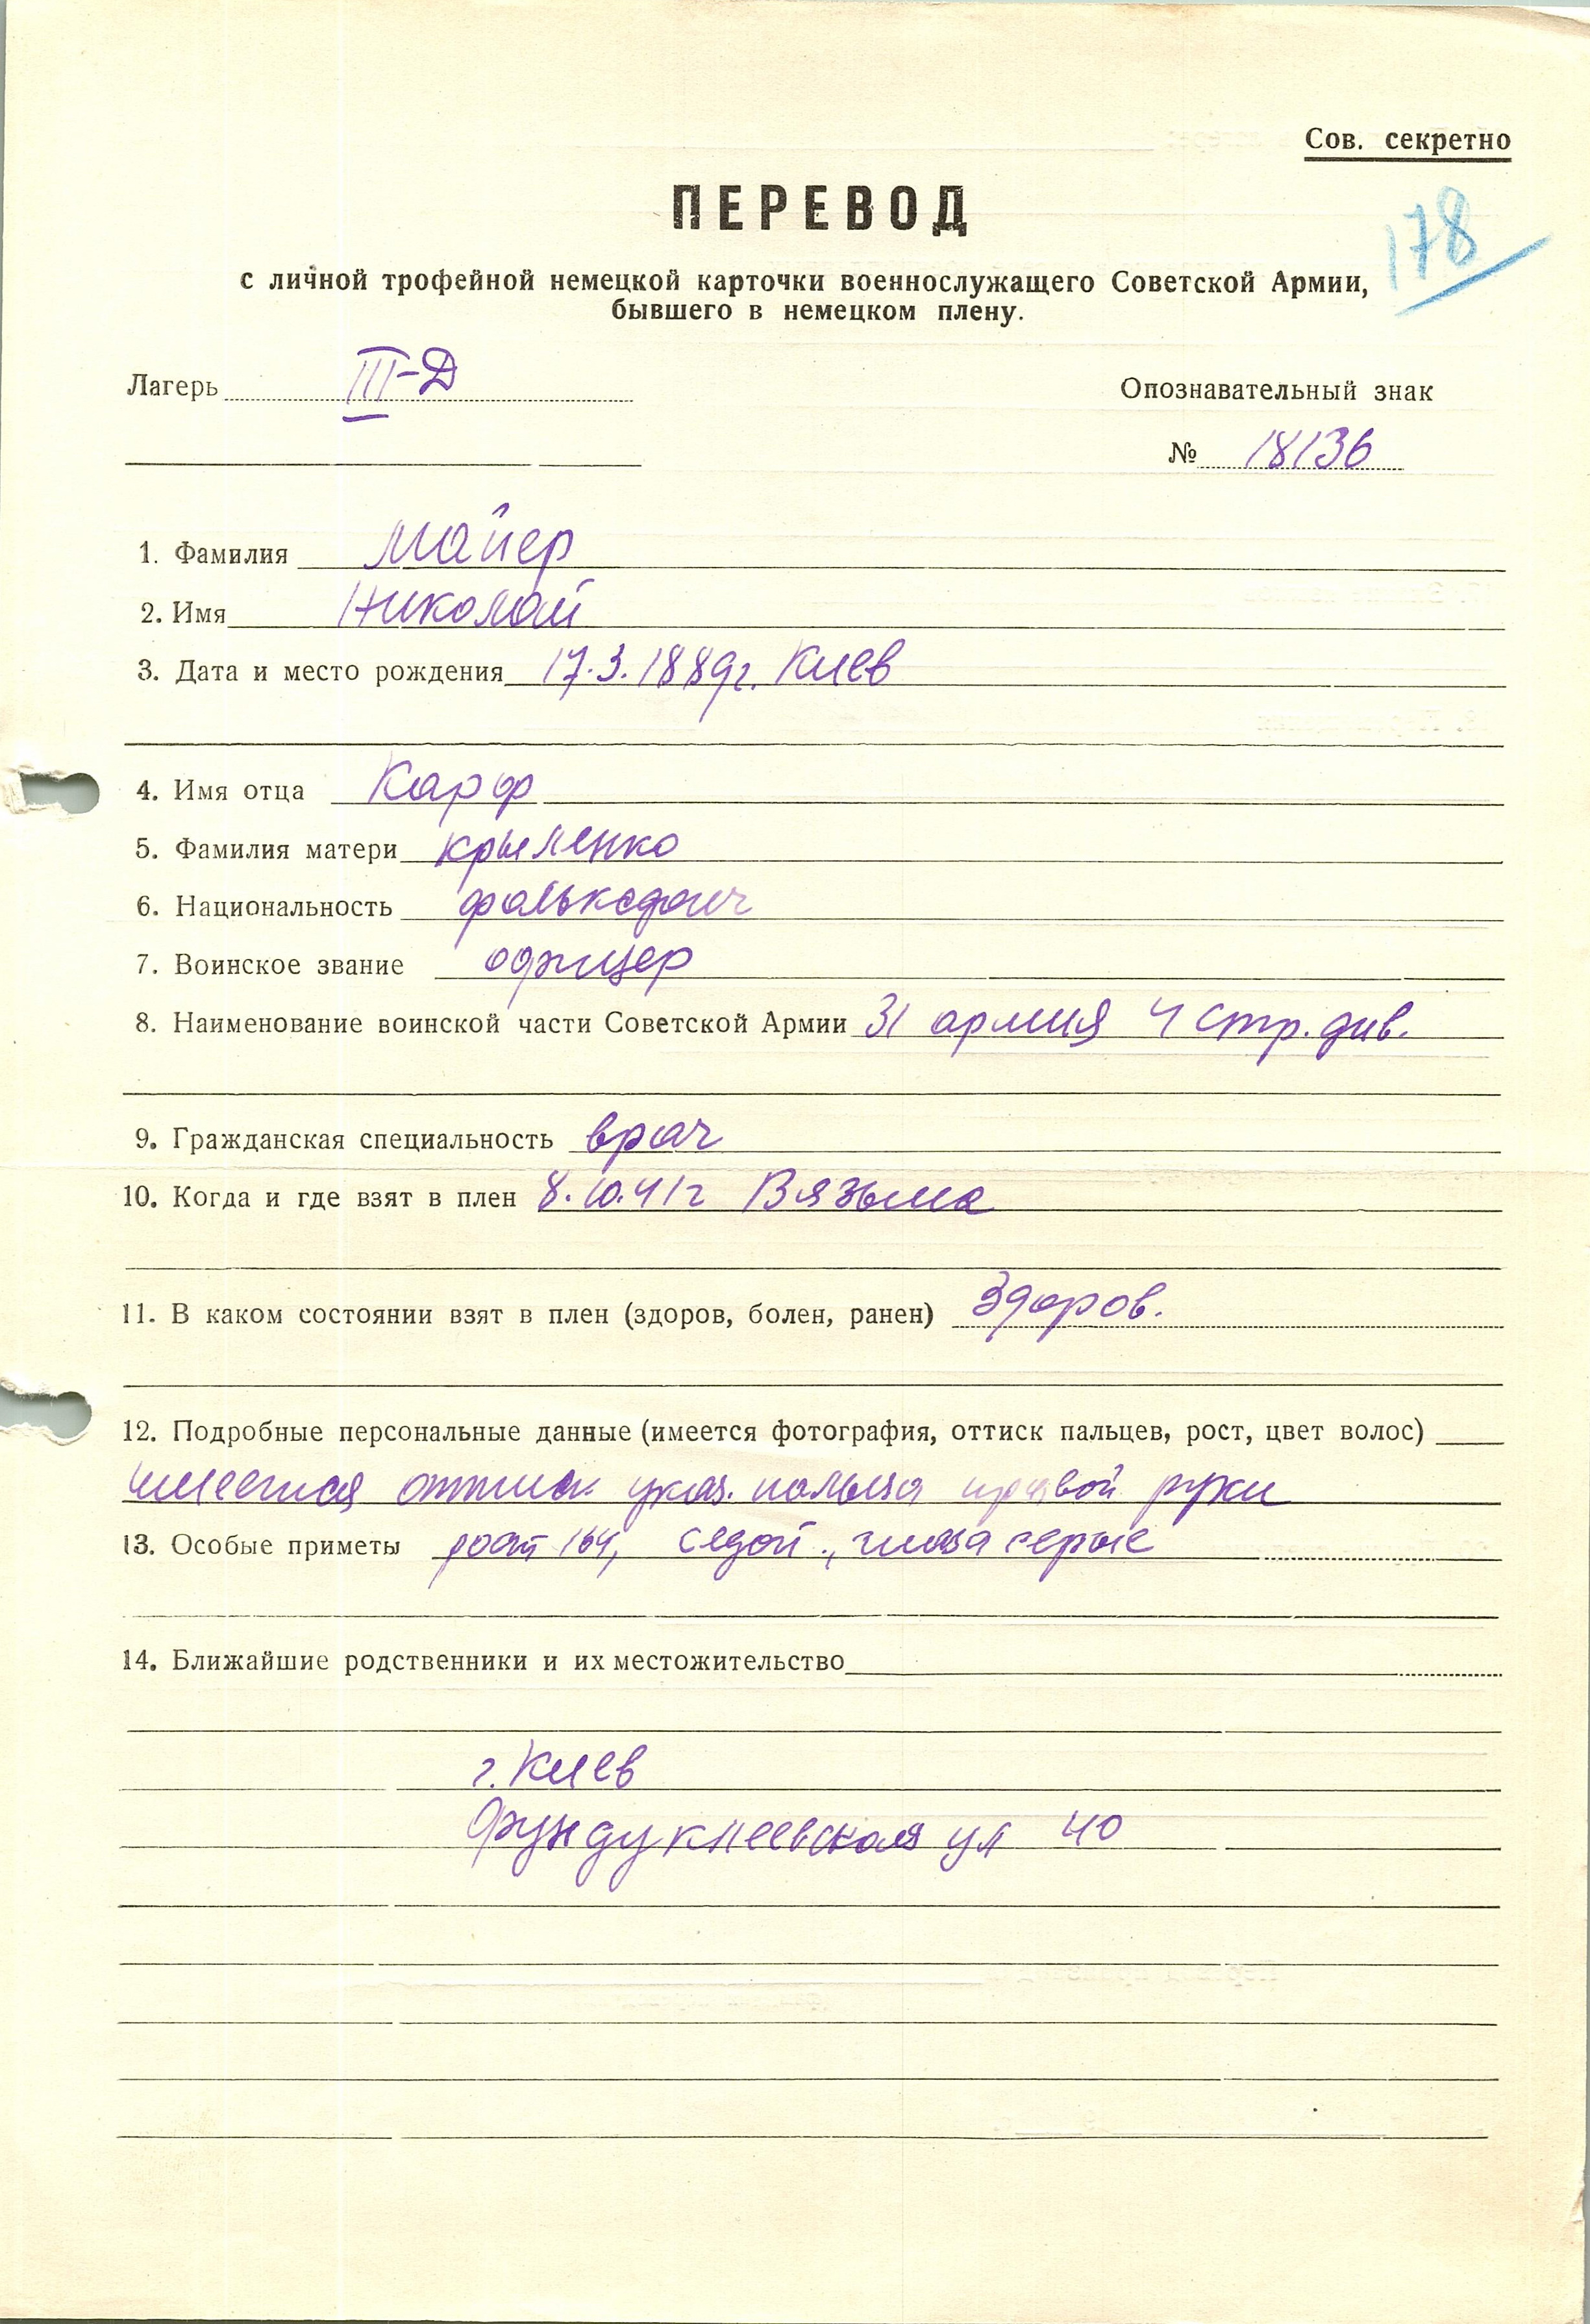 Сов. секретно
ПЕРЕВОД
178
с личной трофейной немецкой карточки военнослужащего Советской Армии,
бывшего в немецком плену.
Лагерь III-Д
Опознавательный знак
№ 18136
1. Фамилия Майер
2. Имя Николай
3. Дата и место рождения 17.3.1889г. Киев
4. Имя отца Карф
5. Фамилия матери Крыленко
6. Национальность фольксдойч
7. Воинское звание офицер
8. Наименование воинской части Советской Армии 31 армия 4 стр. див.
9. Гражданская специальность врач
10. Когда и где взят в плен 8.10.41г Вязьма
11. В каком состоянии взят в плен (здоров, болен, ранен) Здоров.
12. Подробные персональные данные (имеется фотография, оттиск пальцев, рост, цвет волос)
имеется оттиск указ. пальца правой руки
13. Особые приметы рост 164, седой., глаза серые
14. Ближайшие родственники и их местожительство
г. Киев
Фундуклеевская ул 40